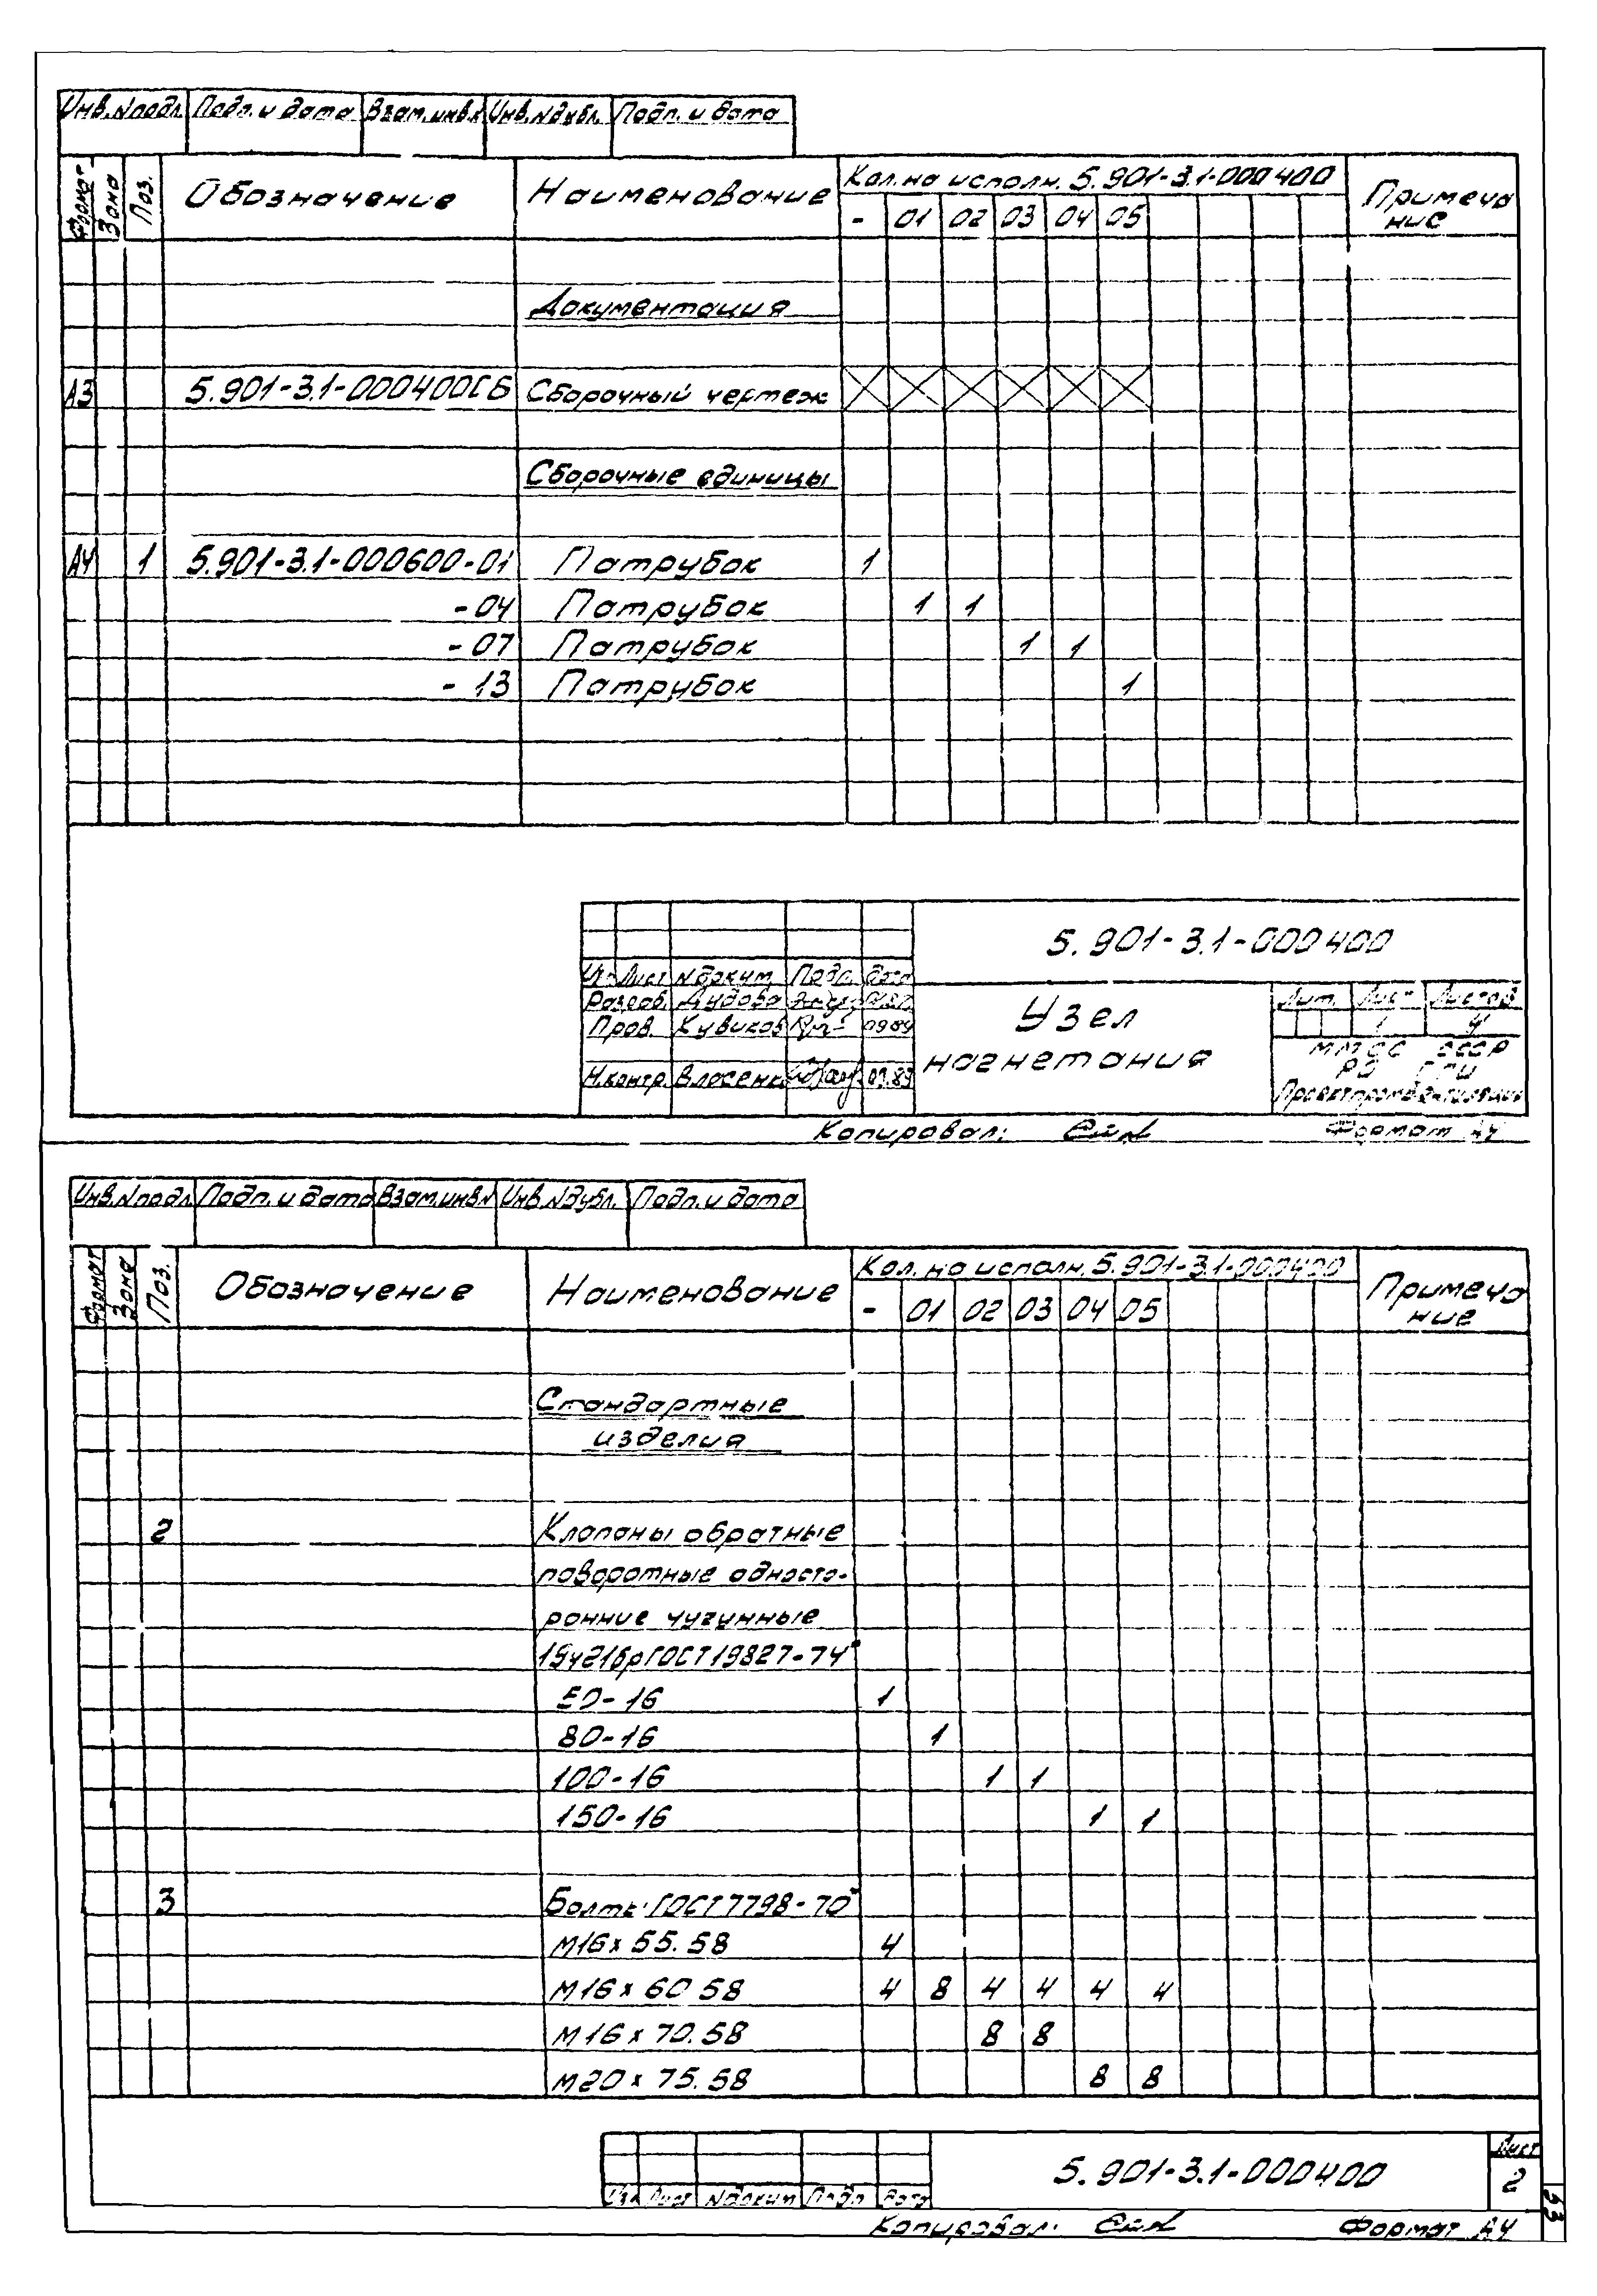 Инв.N подл. Подп. и дата Взам.инв.N Инв.N дубл. Подп. и дата
Формат Зона Поз. Обозначение Наименование Кол. на исполн. 5.901-3.1-000400 Примеча
- 01 02 03 04 05 ние
Документация
А3 5.901-3.1-000400СБ Сборочный чертеж
Сборочные единицы
А4 1 5.901-3.1-000600-01 Патрубок 1
-04 Патрубок 1 1
-07 Патрубок 1 1
-13 Патрубок 1
5.901-3.1-000400
Лист N докум. Подп. дата
Разраб. Дудова
Пров. Кувиков 09.89
Н.контр. Власенко 09.89
Узел
нагнетания
Лит. Лист Листов
1 4
СССР
ГПИ
Копировал: Формат А4
Инв.N подл. Подп. и дата Взам.инв.N Инв.N дубл. Подп. и дата
Формат Зона Поз. Обозначение Наименование Кол. на исполн. 5.901-3.1-000400 Примеча
- 01 02 03 04 05 ние
Стандартные
изделия
2 Клапаны обратные
поворотные односто-
ронние чугунные
19ч21бр ГОСТ 19827-74*
50-16 1
80-16 1
100-16 1 1
150-16 1 1
3 Болты ГОСТ 7798-70*
М16х55.58 4
М16х60 58 4 8 4 4 4 4
М16х70.58 8 8
М20х75.58 8 8
Изм Лист N докум Подп Дата
5.901-3.1-000400
Лист
2
53
Копировал: Формат А4